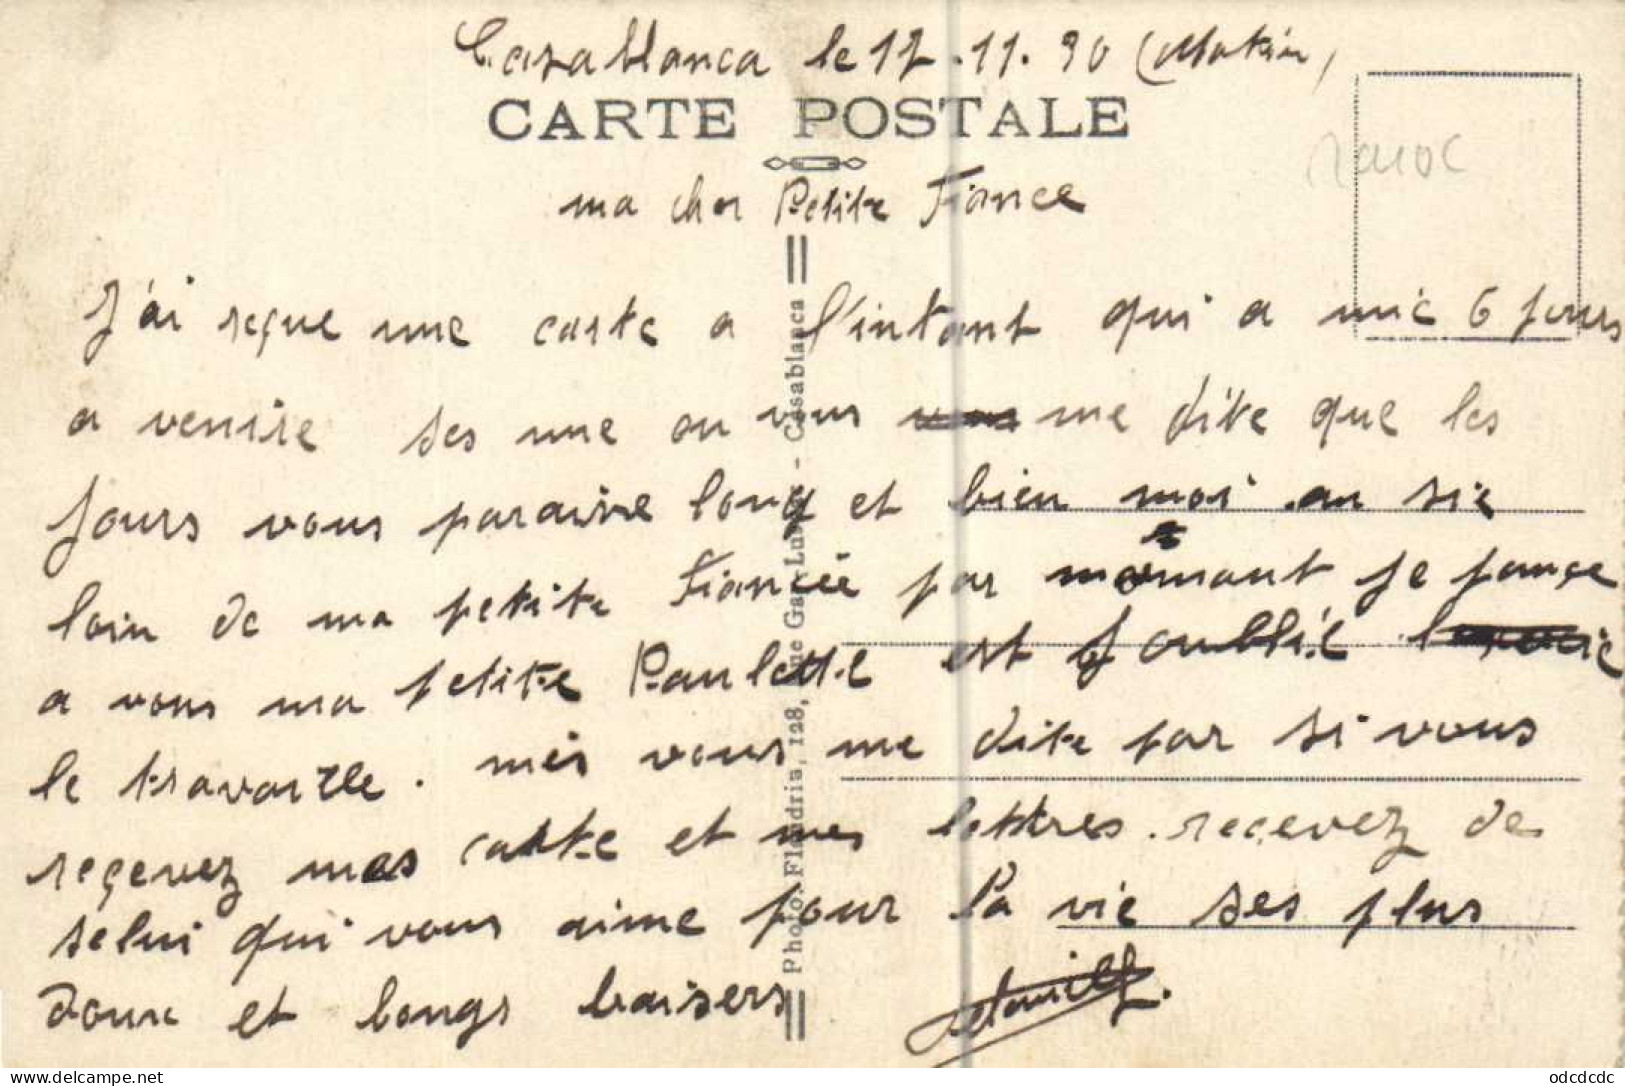 Casablanca le 17.11.30 (Matin)
CARTE POSTALE
Maroc
ma cher Petite Fiance
J'ai reçue une carte a l'intant qui a mie 6 jours
a venire ses une ou vous me dite que les
jours vous paraire long et bien moi au sie
loin de ma petite Fiancée par momant je pançe
a vous ma petite Paulette est j'oublié
le travaille. mes vous me dite par si vous
reçevez mes carte et mes lettres. reçevez de
selui qui vous aime pour la vie ses plus
doux et longs baisers
Photo. Flandris, 128, Rue Gay-Lussac - Casablanca
www.delcampe.net
odcdcdc